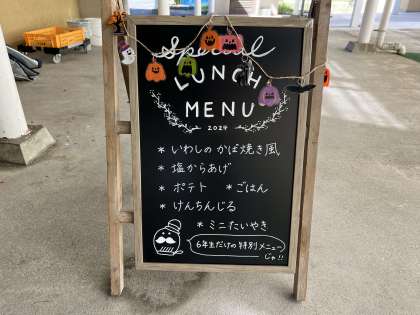 Special
LUNCH
MENU
2024
* いわしのかば焼き風
* 塩からあげ
* ポテト * ごはん
* けんちんじる
* ミニたいやき
6年生だけの特別メニュー
じゃ!!